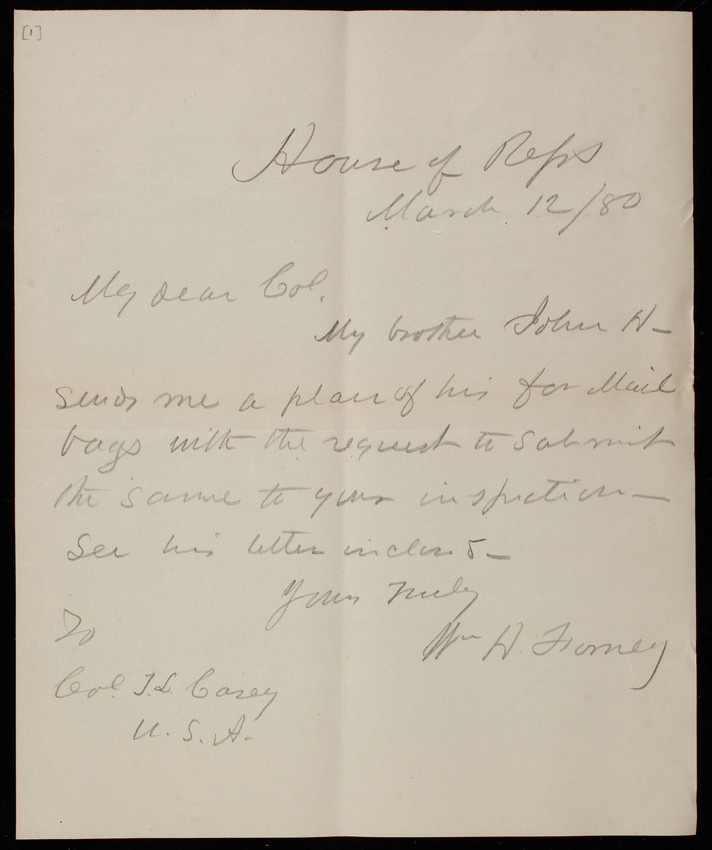 [1]
House of Reps
March 12/80
My dear Col.
My brother John H—
sends me a plan of his for Mail
bags with the request to submit
the same to your inspection—
See his letter inclosed—
Yours truly
Wm H. Forney
To
Col. T. L. Casey
U. S. A.